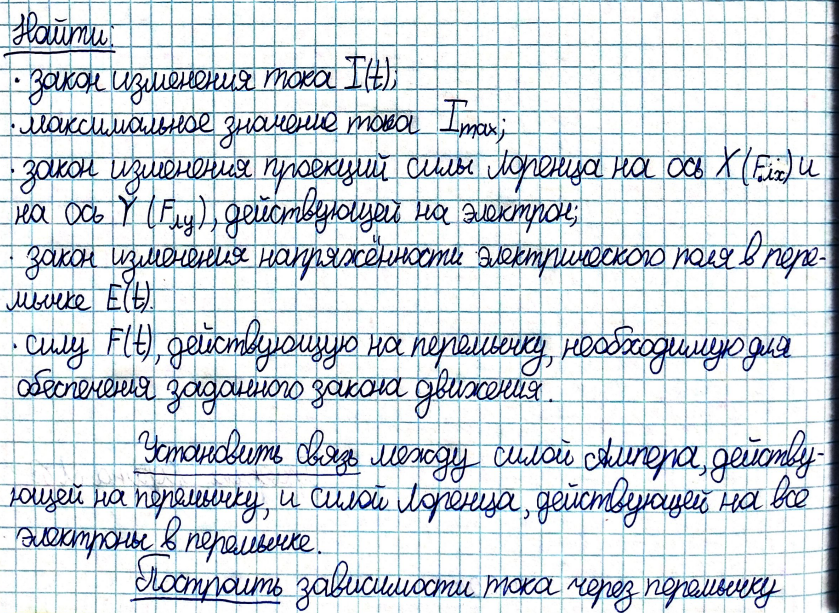 Найти:
· закон изменения тока I(t);
· максимальное значение тока Imax;
· закон изменения проекций силы Лоренца на ось X (Fлx) и
на ось Y (Fлy), действующей на электрон;
· закон изменения напряжённости электрического поля в пере-
мычке E(t).
· силу F(t), действующую на перемычку, необходимую для
обеспечения заданного закона движения.
Установить связь между силой Ампера, действу-
ющей на перемычку, и силой Лоренца, действующей на все
электроны в перемычке.
Построить зависимости тока через перемычку